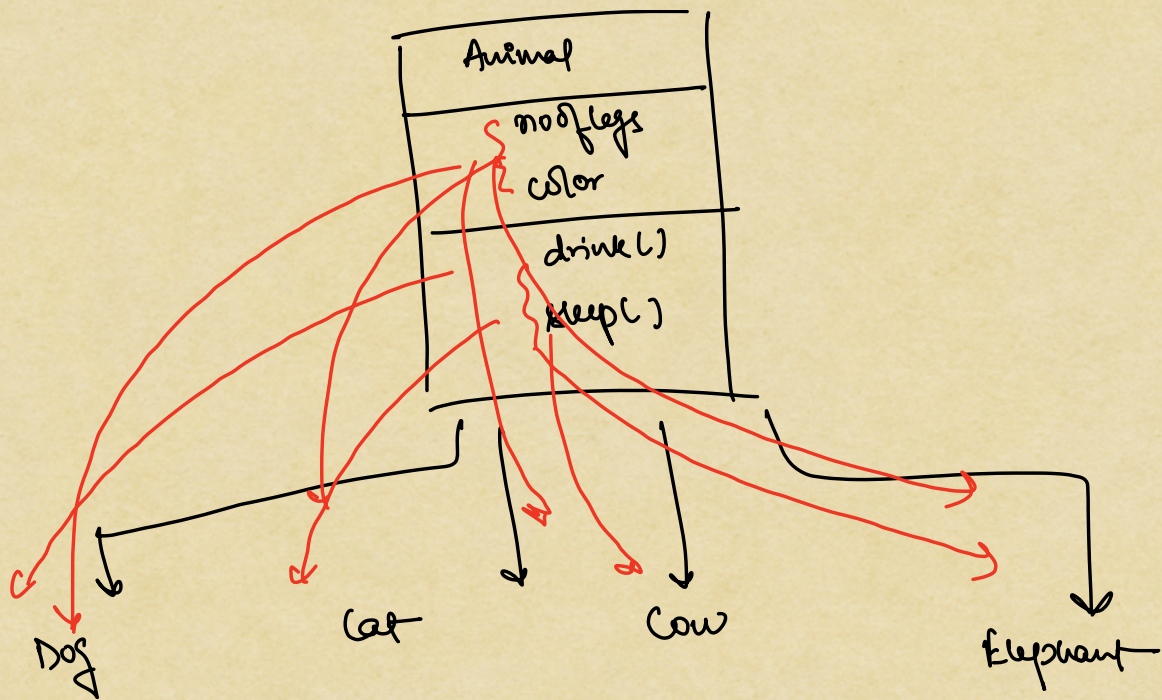 Animal
noOflegs
color
drink()
sleep()
Dog
Cat
Cow
Elephant